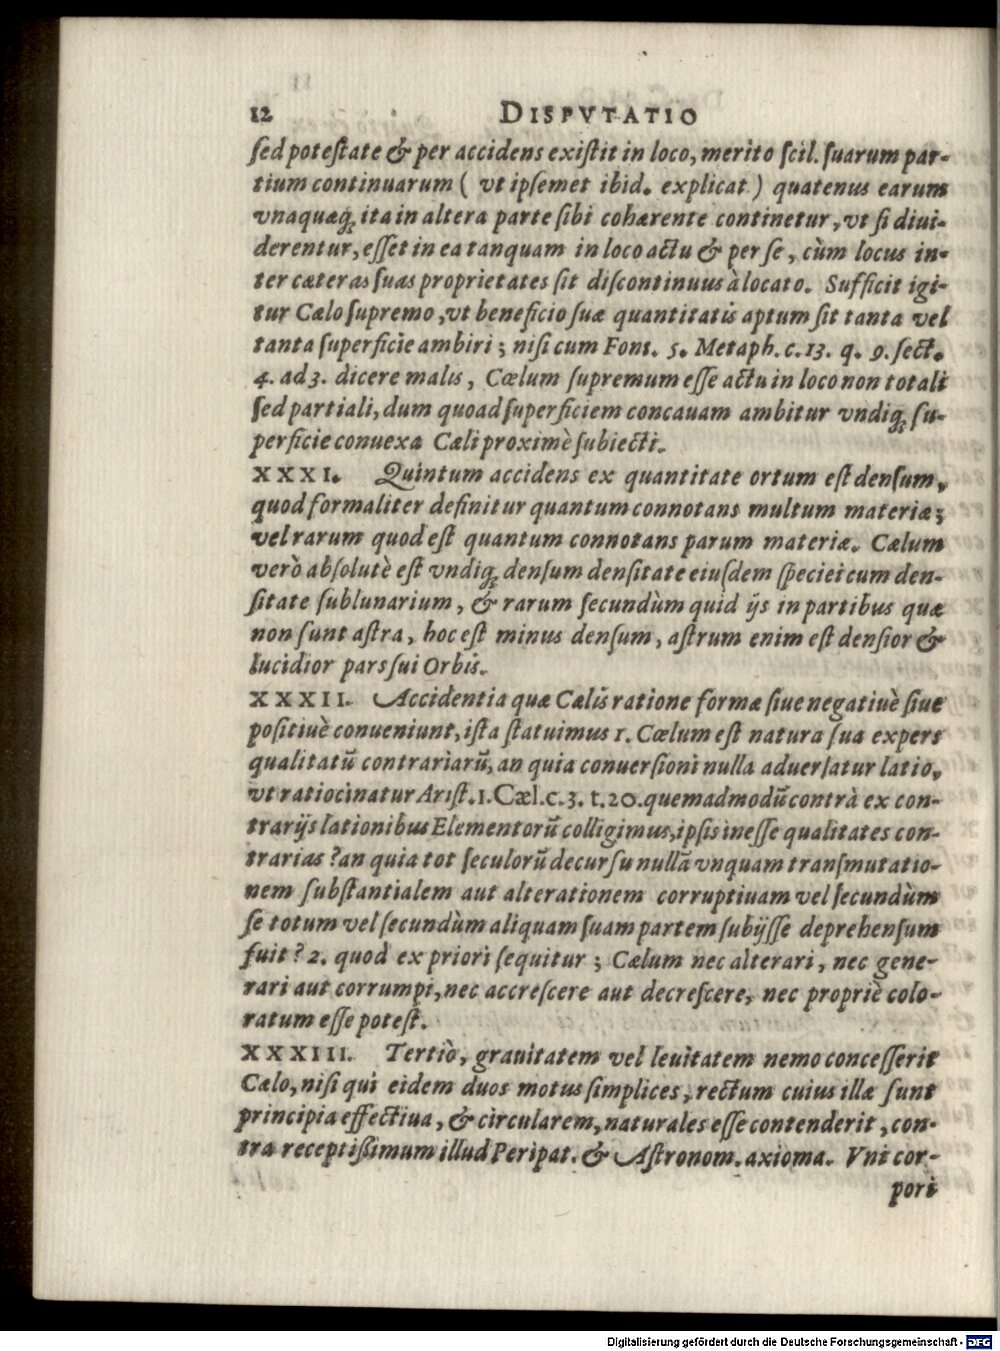 12 DISPVTATIO
ſed poteſtate & per accidens exiſtit in loco, merito ſcil. ſuarum par-
tium continuarum ( vt ipſemet ibid. explicat ) quatenus earum
vnaquæq; ita in altera parte ſibi cohærente continetur, vt ſi diui-
derentur, eſſet in ea tanquam in loco actu & per ſe, cùm locus in-
ter cæteras ſuas proprietates ſit diſcontinuus à locato. Sufficit igi-
tur Cælo ſupremo, vt beneficio ſuæ quantitatis aptum ſit tanta vel
tanta ſuperficie ambiri; niſi cum Fonſ. 5. Metaph. c. 13. q. 9. ſect.
4. ad 3. dicere malis, Cœlum ſupremum eſſe actu in loco non totali
ſed partiali, dum quoad ſuperficiem concauam ambitur vndiq; ſu-
perficie conuexa Cæli proximè ſubiecti.
XXXI. Quintum accidens ex quantitate ortum eſt denſum,
quod formaliter definitur quantum connotans multum materiæ;
vel rarum quod eſt quantum connotans parum materiæ. Cælum
verò abſolutè eſt vndiq; denſum denſitate eiuſdem ſpeciei cum den-
ſitate ſublunarium, & rarum ſecundùm quid ijs in partibus quæ
non ſunt aſtra, hoc eſt minus denſum, aſtrum enim eſt denſior &
lucidior pars ſui Orbis.
XXXII. Accidentia quæ Cælis ratione formæ ſiue negatiuè ſiue
poſitiuè conueniunt, iſta ſtatuimus 1. Cœlum eſt natura ſua expers
qualitatū contrariarū, an quia conuerſioni nulla aduerſatur latio,
vt ratiocinatur Ariſt. 1. Cæl. c. 3. t. 20. quemadmodū contrà ex con-
trarijs lationibus Elementorū colligimus, ipſis ineſſe qualitates con-
trarias ? an quia tot ſeculorū decurſu nullā vnquam tranſmutatio-
nem ſubſtantialem aut alterationem corruptiuam vel ſecundùm
ſe totum vel ſecundùm aliquam ſuam partem ſubijſſe deprehenſum
fuit ? 2. quod ex priori ſequitur ; Cælum nec alterari, nec gene-
rari aut corrumpi, nec accreſcere aut decreſcere, nec propriè colo-
ratum eſſe poteſt.
XXXIII. Tertiò, grauitatem vel leuitatem nemo conceſſerit
Cælo, niſi qui eidem duos motus ſimplices, rectum cuius illæ ſunt
principia effectiua, & circularem, naturales eſſe contenderit, con-
tra receptißimum illud Peripat. & Aſtronom. axioma. Vni cor-
pori
Digitalisierung gefördert durch die Deutsche Forschungsgemeinschaft - DFG